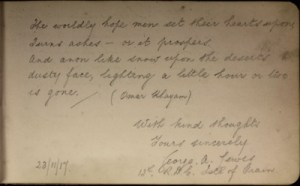 The worldly hope men set their hearts upon
Turns ashes - or it prospers
And anon like snow upon the deserts
dusty face, lighting a little hour or two
is gone. (Omar Khayam)
With kind thoughts
Yours sincerely
George A. Lewis
23/11/17